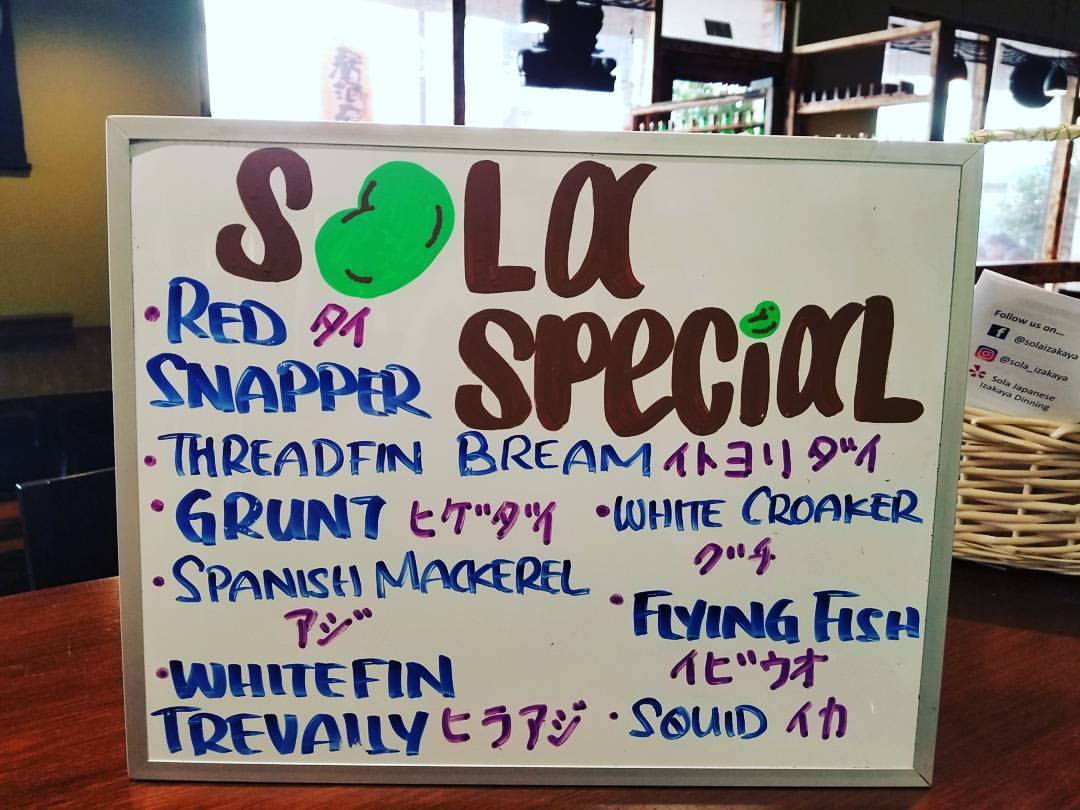 SOLA
SPECIAL
• RED タイ
SNAPPER
• THREADFIN BREAM イトヨリダイ
• GRUNT ヒゲダイ
• WHITE CROAKER
グチ
• SPANISH MACKEREL
アジ
• FLYING FISH
イビウオ
• WHITEFIN
TREVALLY ヒラアジ
• SQUID イカ
Follow us on...
@solaizakaya
@sola_izakaya
Sola Japanese
Izakaya Dinning